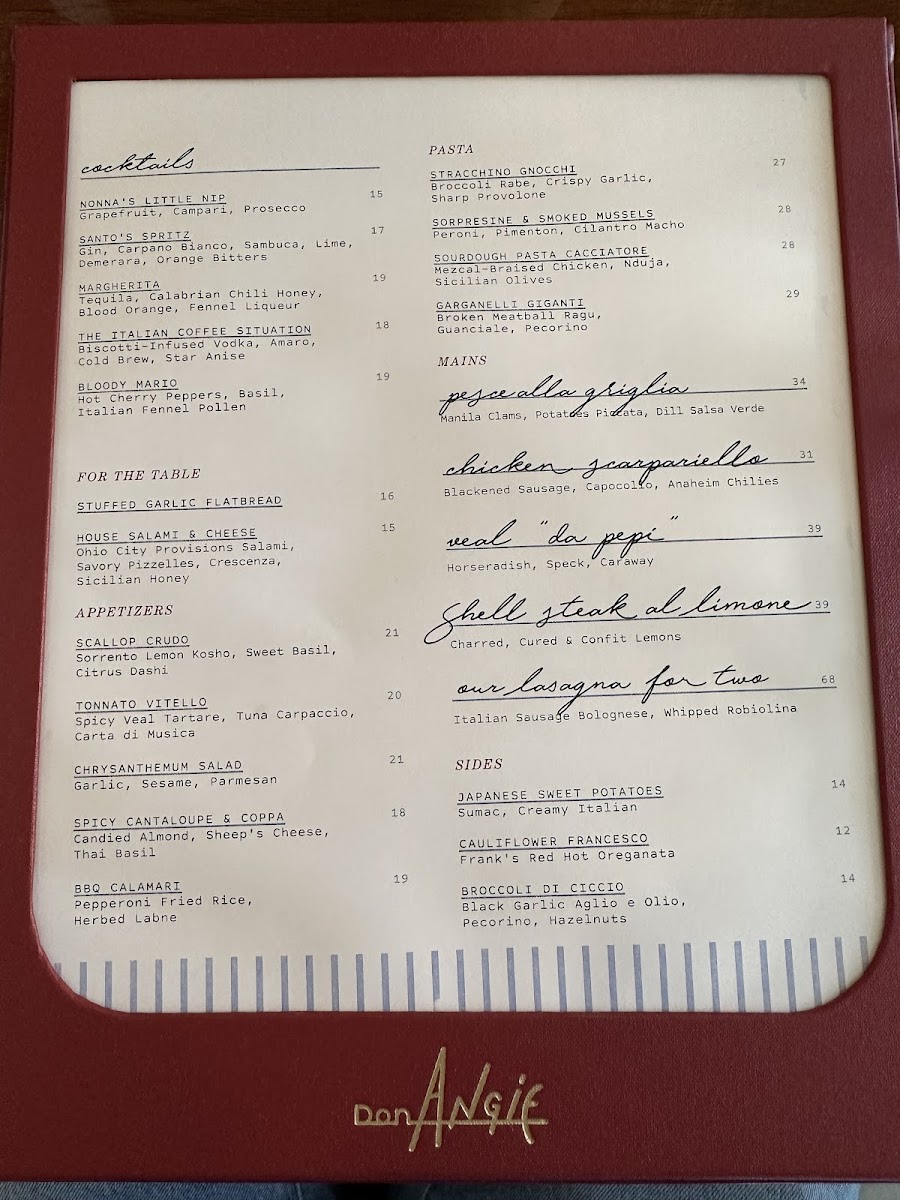 cocktails
NONNA'S LITTLE NIP 15
Grapefruit, Campari, Prosecco
SANTO'S SPRITZ 17
Gin, Carpano Bianco, Sambuca, Lime,
Demerara, Orange Bitters
MARGHERITA 19
Tequila, Calabrian Chili Honey,
Blood Orange, Fennel Liqueur
THE ITALIAN COFFEE SITUATION 18
Biscotti-Infused Vodka, Amaro,
Cold Brew, Star Anise
BLOODY MARIO 19
Hot Cherry Peppers, Basil,
Italian Fennel Pollen
FOR THE TABLE
STUFFED GARLIC FLATBREAD 16
HOUSE SALAMI & CHEESE 15
Ohio City Provisions Salami,
Savory Pizzelles, Crescenza,
Sicilian Honey
APPETIZERS
SCALLOP CRUDO 21
Sorrento Lemon Kosho, Sweet Basil,
Citrus Dashi
TONNATO VITELLO 20
Spicy Veal Tartare, Tuna Carpaccio,
Carta di Musica
CHRYSANTHEMUM SALAD 21
Garlic, Sesame, Parmesan
SPICY CANTALOUPE & COPPA 18
Candied Almond, Sheep's Cheese,
Thai Basil
BBQ CALAMARI 19
Pepperoni Fried Rice,
Herbed Labne
PASTA
STRACCHINO GNOCCHI 27
Broccoli Rabe, Crispy Garlic,
Sharp Provolone
SORPRESINE & SMOKED MUSSELS 28
Peroni, Pimenton, Cilantro Macho
SOURDOUGH PASTA CACCIATORE 28
Mezcal-Braised Chicken, Nduja,
Sicilian Olives
GARGANELLI GIGANTI 29
Broken Meatball Ragu,
Guanciale, Pecorino
MAINS
pesce alla griglia 34
Manila Clams, Potatoes Piccata, Dill Salsa Verde
chicken scarpariello 31
Blackened Sausage, Capocollo, Anaheim Chilies
veal "da pepi" 39
Horseradish, Speck, Caraway
Shell steak al limone 39
Charred, Cured & Confit Lemons
our lasagna for two 68
Italian Sausage Bolognese, Whipped Robiolina
SIDES
JAPANESE SWEET POTATOES 14
Sumac, Creamy Italian
CAULIFLOWER FRANCESCO 12
Frank's Red Hot Oreganata
BROCCOLI DI CICCIO 14
Black Garlic Aglio e Olio,
Pecorino, Hazelnuts
Don ANGIE